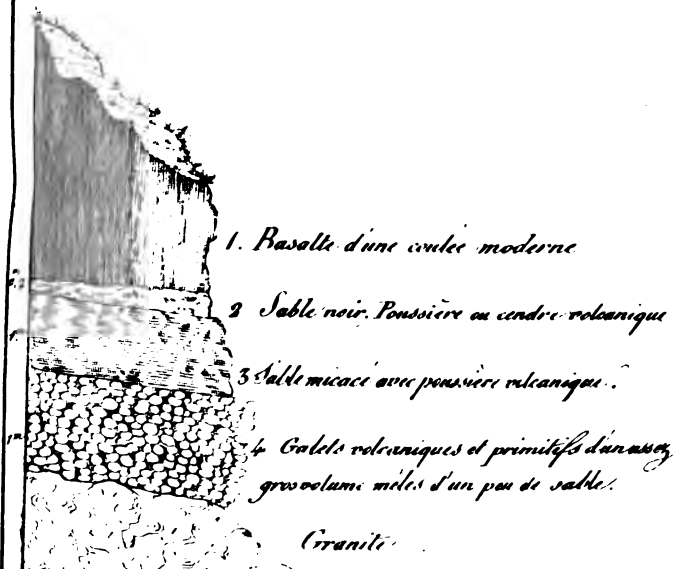 1. Basalte d'une coulée moderne
2 Sable noir. Poussière ou cendre volcanique
3 Sable micacé avec poussière volcanique.
4 Galets volcaniques et primitifs d'un assez
gros volume mêlés d'un peu de sable.
Granite